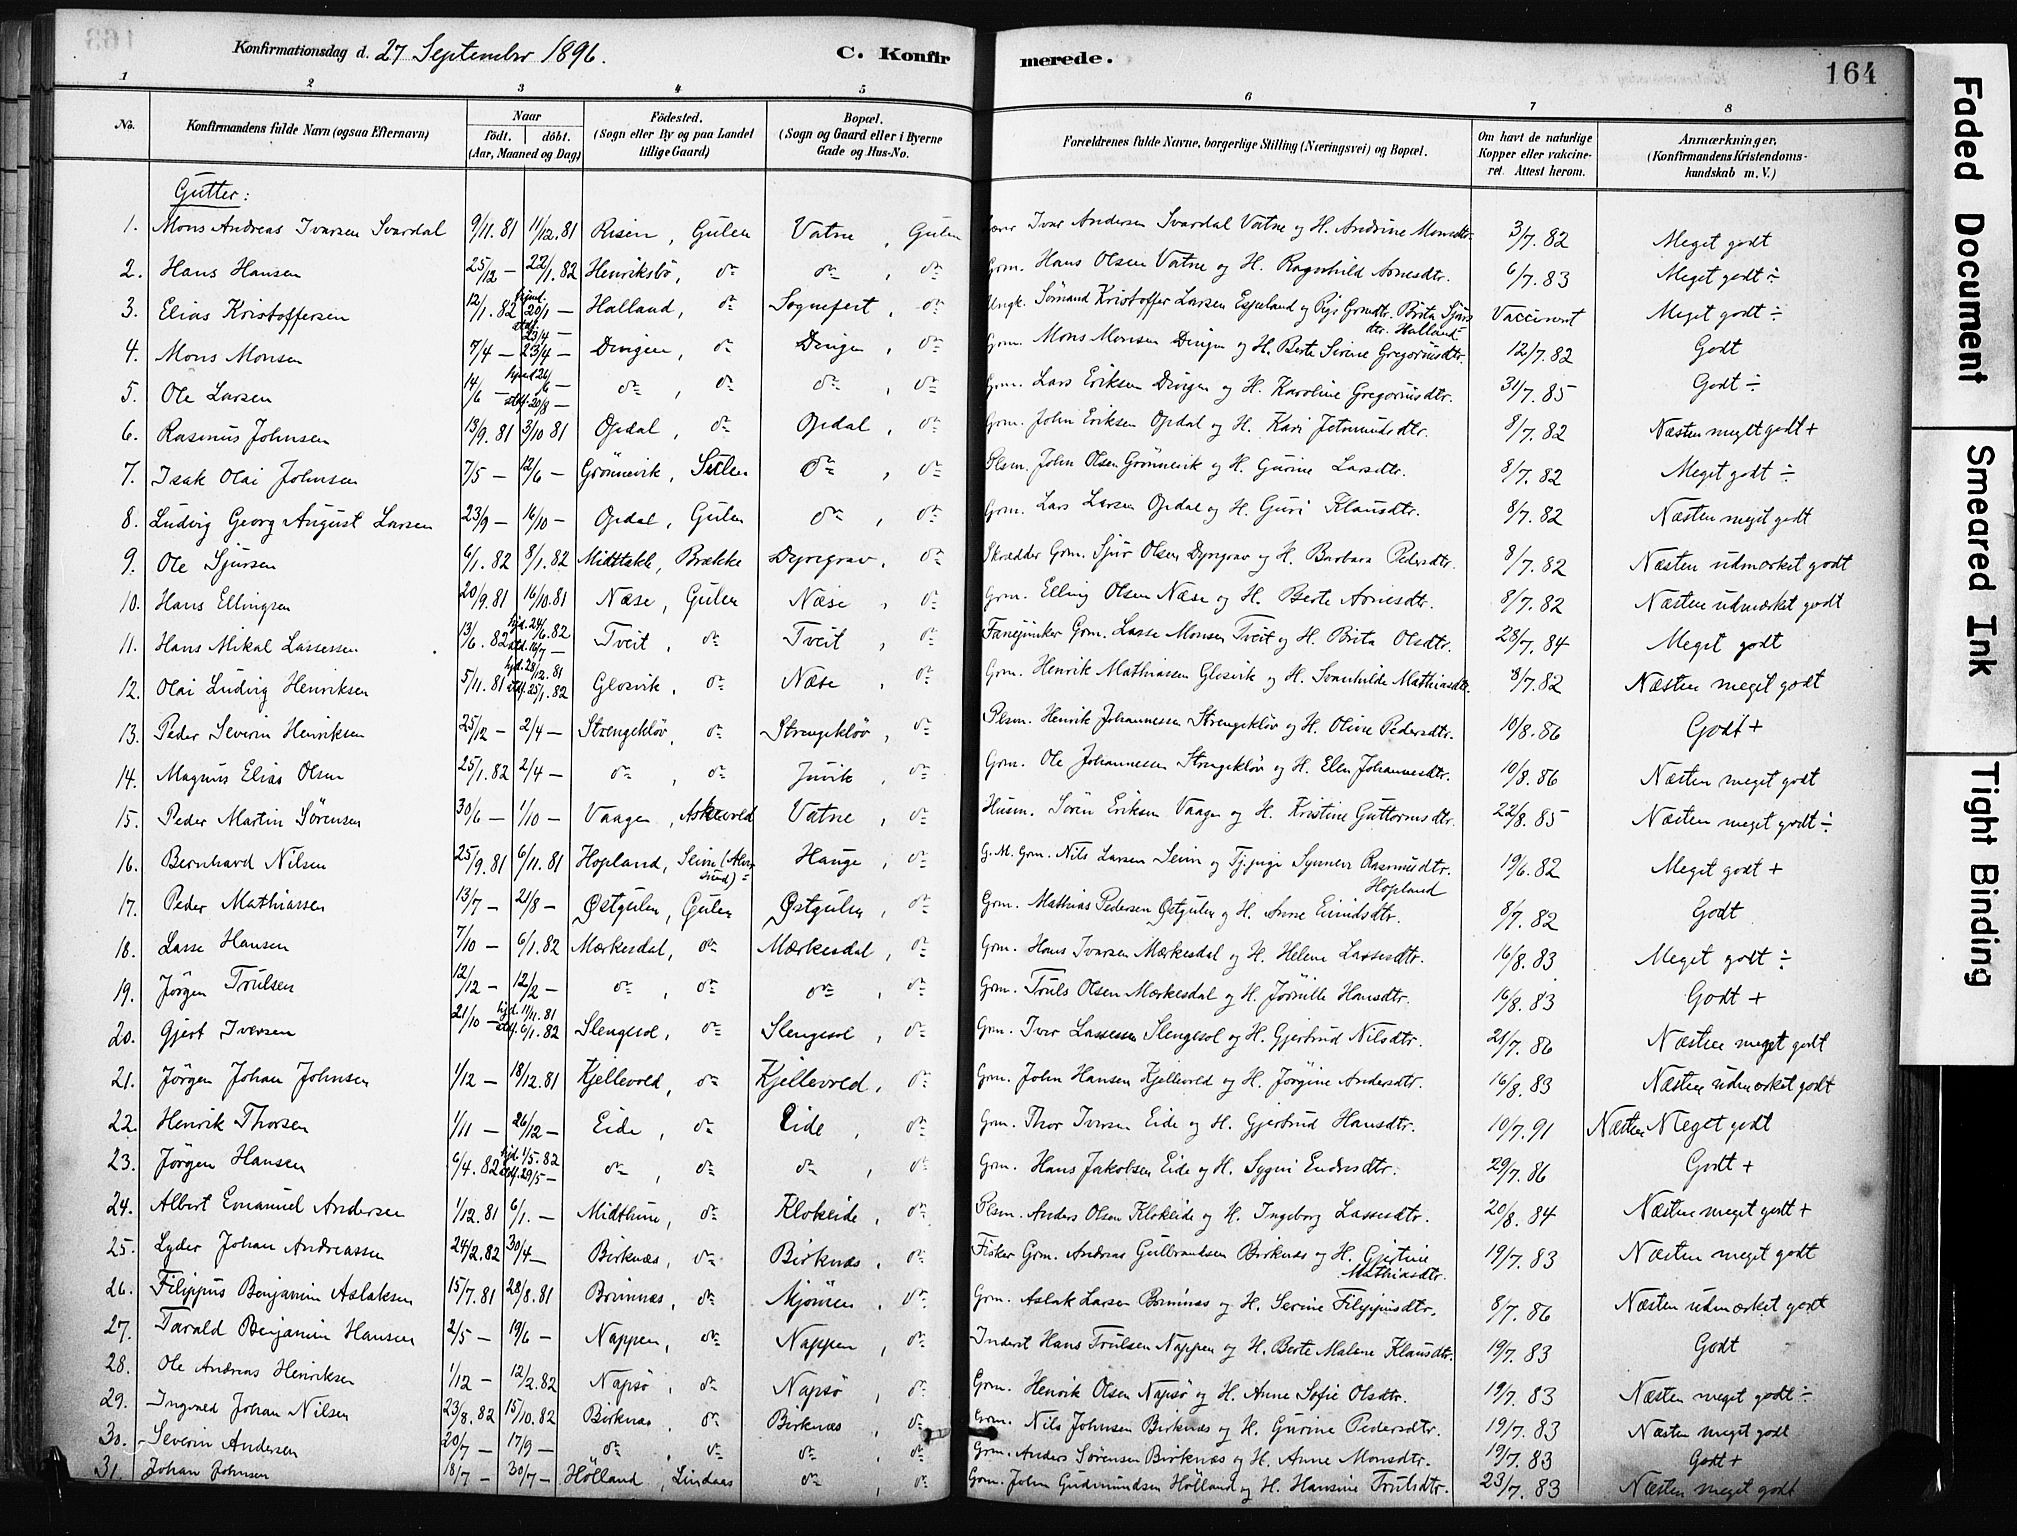 Konfirmationsdag d. 27 September 1896. C. Konfirmerede. 164
1 2 3 4 5 6 7 8
No. Konfirmandens fulde Navn (ogsaa Efternavn) Naar födt. döbt. (Aar, Maaned og Dag) Födested. (Sogn eller By og paa Landet tillige Gaard) Bopæl. (Sogn og Gaard eller i Byerne Gade og Hus-No. Forældrenes fulde Navne, borgerlige Stilling (Næringsvei) og Bopæl. Om havt de naturlige Kopper eller vakcineret. Attest herom. Anmærkninger. (Konfirmandens Kristendomskundskab m. V.)
Gutter:
1. Mons Andreas Ivarsen Svardal 9/11. 81 11/12. 81 Risen, Gulen Vatne, Gulen Ivar Andersen Svardal Vatne og H. Andrine Monsdtr. 3/7. 82 Meget godt
2. Hans Hansen 25/12 – 22/1. 82 Henriksbö, do do, do Grm. Hans Olsen Vatne og H. Ragnhild Arnesdtr. 6/7. 83 Meget godt ÷
3. Elias Kristoffersen 12/1. 82 hjmd. 20/1 – stdf. 23/4 – Halland, do Sognefest, do Ungk. Sömand Kristoffer Larsen Espeland og Pige Grmdtr. Brita Sjursdtr. Halland Vaccineret Meget godt ÷
4. Mons Monsen 7/4 – 23/4 – Dingen, do Dingen, do Grm. Mons Monsen Dingen og H. Berte Serine Gregoriusdtr. 12/7. 82 Godt
5. Ole Larsen 14/6 – hjmd. 24/6 – stdf. 20/8 – do, do do, do Grm. Lars Eriksen Dingen og H. Karoline Gregoriusdtr. 31/7. 85 Godt ÷
6. Rasmus Johnsen 13/9. 81 3/10 81 Opdal, do Opdal, do Grm. John Eriksen Opdal og H. Kari Jetmundsdtr. 8/7. 82 Næsten meget godt +
7. Isak Olai Johnsen 7/5 – 12/6 – Grönnevik, do, do Plsm. John Olsen Grönnevik og H. Gurine Larsdtr. 8/7. 82 Meget godt ÷
8. Ludvig Georg August Larsen 23/9 – 16/10 – Opdal, Gulen do, do Grm. Lars Larsen Opdal og H. Guri Klausdtr. 8/7. 82 Næsten meget godt
9. Ole Sjursen 6/1. 82 8/1. 82 Midttakle, Brække Dyregrav, do Skrædder Grm. Sjur Olsen Dyregrav og H. Barbara Pedersdtr. 8/7. 82 Næsten udmærket godt
10. Hans Ellingsen 20/9. 81 16/10. 81 Næse, Gulen Næse, do Grm. Elling Olsen Næse og H. Berte Arnesdtr. 8/7. 82 Næsten udmærket godt
11. Hans Mikal Lassessen 13/6. 82 hjd. 24/6. 82 stdf. 16/7 – Tveit, do Tveit, do Fanejunker Grm. Lasse Monsen Tveit og H. Brita Olsdtr. 28/7. 84 Meget godt
12. Olai Ludvig Henriksen 5/11. 81 hjd. 28/12. 81 stdf. 25/1. 82 Glosvik, do Næse, do Grm. Henrik Mathiassen Glosvik og H. Svanhilde Mathiasdtr. 8/7. 82 Næsten meget godt
13. Peder Severin Henriksen 25/12 – 2/4 – Strengeklöv, do Strengeklöv, do Plsm. Henrik Johannessen Strengeklöv og H. Oline Pedersdtr. 10/8. 86 Godt +
14. Magnus Elias Olsen 25/1. 82 2/4 – do, do Juvik, do Grm. Ole Johannessen Strengeklöv og H. Ellen Johannesdtr. 10/8. 86 Næsten meget godt
15. Peder Martin Sörensen 30/6 – 1/10 – Vaagen, Askevold Vatne, do Husm. Sören Eriksen Vaagen og H. Kristine Guttormsdtr. 22/8. 85 Næsten meget godt ÷
16. Bernhard Nilsen 25/9. 81 6/11. 81 Hopland, Seim (Alversund) Hauge, do G. M. Grm. Nils Larsen Seim og Synneva Rasmusdtr. Hopland 19/6. 82 Meget godt +
17. Peder Mathiassen 13/7 – 21/8 – Østgulen, Gulen Østgulen, do Grm. Mathias Pedersen Østgulen og H. Anne Eivindsdtr. 8/7. 82 Godt
18. Lasse Hansen 7/10 – 6/1. 82 Mærkesdal, do Mærkesdal, do Grm. Hans Ivarsen Mærkesdal og H. Helene Lassesdtr. 16/8. 83 Meget godt ÷
19. Jörgen Trulsen 12/12 – 12/2 – do, do do, do Grm. Truls Olsen Mærkesdal og H. Jörnille Hansdtr. 16/8. 83 Godt +
20. Gjert Iversen 21/10 – hjd. 11/11. 81 stdf. 6/1. 82 Slengesol, do Slengesol, do Grm. Iver Lassessen Slengesol og H. Gjertrud Nilsdtr. 21/7. 86 Næsten meget godt
21. Jörgen Johan Johnsen 1/12 – 18/12. 81 Kjellevold, do Kjellevold, do Grm. John Hansen Kjellevold og H. Jörgine Andersdtr. 16/8. 83 Næsten udmærket godt
22. Henrik Thorsen 1/11 – 26/12 – Eide, do Eide, do Grm. Thor Iversen Eide og H. Gjertrud Hansdtr. 10/7. 91 Næsten Meget godt
23. Jörgen Hansen 6/4. 82 hjd. 1/5. 82 stdf. 29/5 – do, do do, do Grm. Hans Jakobsen Eide og H. Sygni Endresdtr. 29/7. 86 Godt +
24. Albert Emanuel Andersen 1/12. 81 6/1. – Midthun, do Klokeide, do Plsm. Anders Olsen Klokeide og H. Ingeborg Lassesdtr. 20/8. 84 Næsten meget godt +
25. Lyder Johan Andreassen 24/2. 82 30/4 – Birknæs, do Birknæs, do Fisker Grm. Andreas Gulbrandsen Birknæs og H. Gjertine Mathiasdtr. 19/7. 83 Næsten meget godt
26. Filippus Benjamin Aslaksen 15/7. 81 28/8. 81 Brimnæs, do Mjömen, do Grm. Aslak Larsen Brimnæs og H. Serine Filippusdtr. 8/7. 86 Næsten udmærket godt
27. Tarald Benjamin Hansen 2/5 – 19/6 – Nappen, do Nappen, do Inderst Hans Trulsen Nappen og H. Berte Malene Klausdtr. 19/7. 83 Godt
28. Ole Andreas Henriksen 1/12 – 12/2. 82 Napsö, do Napsö, do Grm. Henrik Olsen Napsö og H. Anne Sofie Olsdtr. 19/7. 83 Næsten meget godt ÷
29. Ingvald Johan Nilsen 23/8. 82 15/10. 82 Birknæs, do Birknæs, do Grm. Nils Johnsen Birknæs og H. Gurine Pedersdtr. 19/7. 83 Næsten meget godt
30. Severin Andersen 20/7 – 17/9 – do, do do, do Grm. Anders Sörensen Birknæs og H. Anne Monsdtr. 19/7. 83 Godt +
31. Johan Johnsen 18/7 – 30/7 – Hölland, Lindaas do, do Grm. John Gudmundsen Hölland og H. Hansine Trulsdtr. 23/7. 83 Næsten meget godt
Faded Document
Smeared Ink
Tight Binding